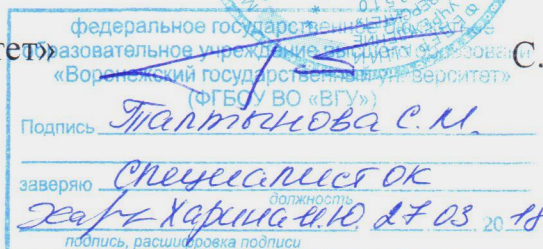 федеральное государственное
тет» образовательное учреждение высшего образования С.
«Воронежский государственный университет»
(ФГБОУ ВО «ВГУ»)
Подпись Талтынова С.М.
заверяю специалист ОК
должность
Харина И.Ю. 27 03 20 18
подпись, расшифровка подписи